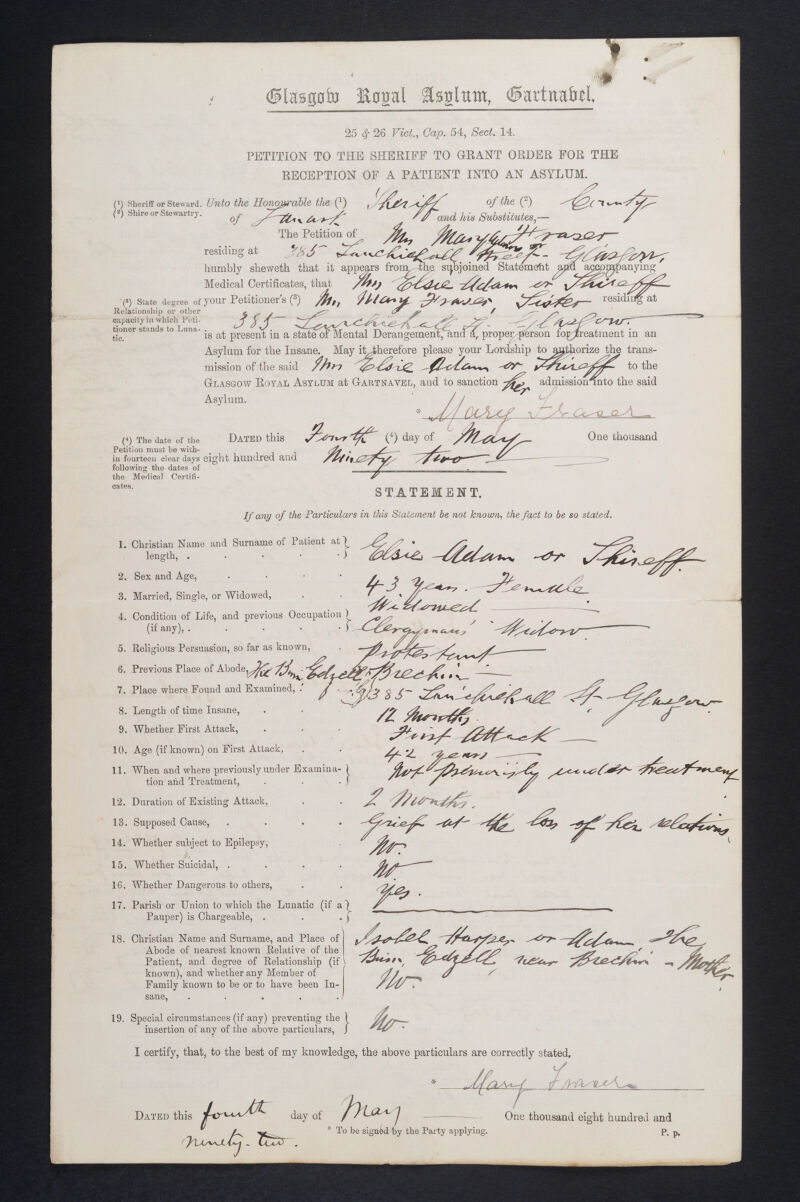 Glasgow Royal Asylum, Gartnavel.
25 & 26 Vict., Cap. 54, Sect. 14.
PETITION TO THE SHERIFF TO GRANT ORDER FOR THE
RECEPTION OF A PATIENT INTO AN ASYLUM.
(1) Sheriff or Steward.
(2) Shire or Stewartry.
Unto the Honourable the (1) Sheriff of the (2) County
of Lanark and his Substitutes,—
The Petition of Mrs Mary Adam or Fraser
residing at 385 Sauchiehall Street - Glasgow,
humbly sheweth that it appears from the subjoined Statement and accompanying
Medical Certificates, that Mrs Elsie Adam or Shireff
(3) State degree of Relationship or other capacity in which Petitioner stands to Lunatic.
your Petitioner's (3) Mrs Mary Fraser, Sister residing at
385 Sauchiehall St. Glasgow.
is at present in a state of Mental Derangement, and a proper person for treatment in an
Asylum for the Insane. May it therefore please your Lordship to authorize the trans-
mission of the said Mrs Elsie Adam or Shireff to the
GLASGOW ROYAL ASYLUM AT GARTNAVEL, and to sanction her admission into the said
Asylum.
* Mary Fraser
(4) The date of the Petition must be within fourteen clear days following the dates of the Medical Certificates.
DATED this Fourth (4) day of May One thousand
eight hundred and Ninety two
STATEMENT.
If any of the Particulars in this Statement be not known, the fact to be so stated.
1. Christian Name and Surname of Patient at length, . Elsie Adam or Shireff.
2. Sex and Age, 43 years. Female.
3. Married, Single, or Widowed, Widowed
4. Condition of Life, and previous Occupation (if any), . Clergyman's Widow
5. Religious Persuasion, so far as known, Protestant
6. Previous Place of Abode, The Burn, Edzell, Brechin
7. Place where Found and Examined, 385 Sauchiehall St, Glasgow.
8. Length of time Insane, 12 Months.
9. Whether First Attack, First Attack —
10. Age (if known) on First Attack, 42 years —
11. When and where previously under Examination and Treatment, Not previously under treatment
12. Duration of Existing Attack, 2 Months.
13. Supposed Cause, Grief at the loss of her relations.
14. Whether subject to Epilepsy, No.
15. Whether Suicidal, No
16. Whether Dangerous to others, Yes.
17. Parish or Union to which the Lunatic (if a Pauper) is Chargeable,
18. Christian Name and Surname, and Place of Abode of nearest known Relative of the Patient, and degree of Relationship (if known), and whether any Member of Family known to be or to have been Insane, Isobel Harper or Adam, The Burn, Edzell, near Brechin - Mother. No.
19. Special circumstances (if any) preventing the insertion of any of the above particulars, No.
I certify, that, to the best of my knowledge, the above particulars are correctly stated,
* Mary Fraser
DATED this fourth day of May One thousand eight hundred and
ninety-two.
* To be signed by the Party applying.
P. p.